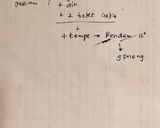 garam
+ air
+ 2 tetes cuka
+
+ tempe → Rendam 15"
↓
goreng